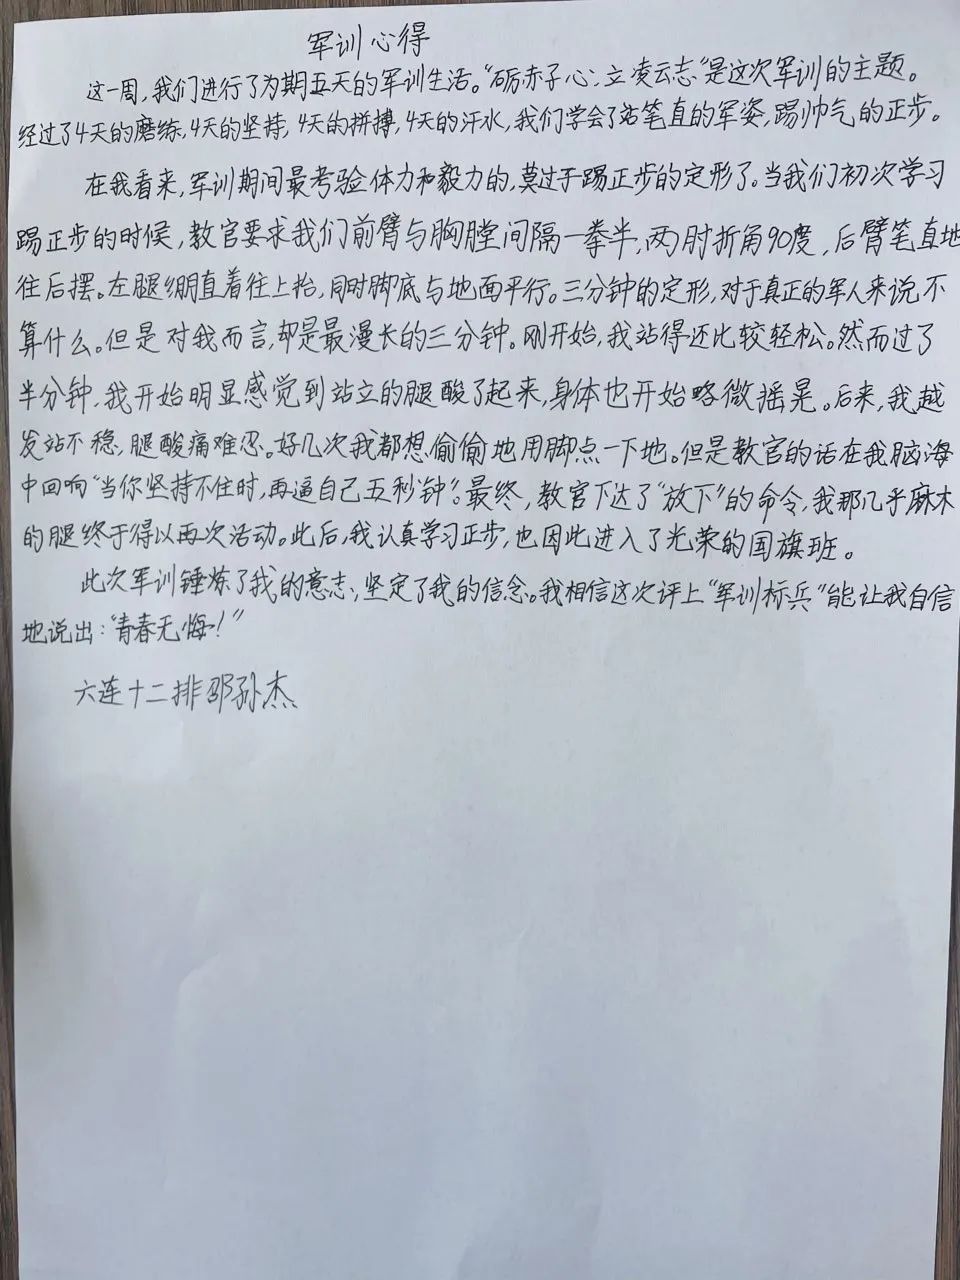 军训心得
这一周，我们进行了为期五天的军训生活。“砺赤子心，立凌云志”是这次军训的主题。
经过了4天的磨练，4天的坚持，4天的拼搏，4天的汗水，我们学会了站笔直的军姿，踢帅气的正步。
在我看来，军训期间最考验体力和毅力的，莫过于踢正步的定形了。当我们初次学习
踢正步的时候，教官要求我们前臂与胸膛间隔一拳半，两肘折角90度，后臂笔直地
往后摆。左腿绷直着往上抬，同时脚底与地面平行。三分钟的定形，对于真正的军人来说不
算什么。但是对我而言，却是最漫长的三分钟。刚开始，我站得还比较轻松。然而过了
半分钟，我开始明显感觉到站立的腿酸了起来，身体也开始略微摇晃。后来，我越
发站不稳，腿酸痛难忍。好几次我都想偷偷地用脚点一下地。但是教官的话在我脑海
中回响“当你坚持不住时，再逼自己五秒钟”。最终，教官下达了“放下”的命令，我那几乎麻木
的腿终于得以再次活动。此后，我认真学习正步，也因此进入了光荣的国旗班。
此次军训锤炼了我的意志，坚定了我的信念。我相信这次评上“军训标兵”能让我自信
地说出：“青春无悔！”
六连十二排邵孙杰